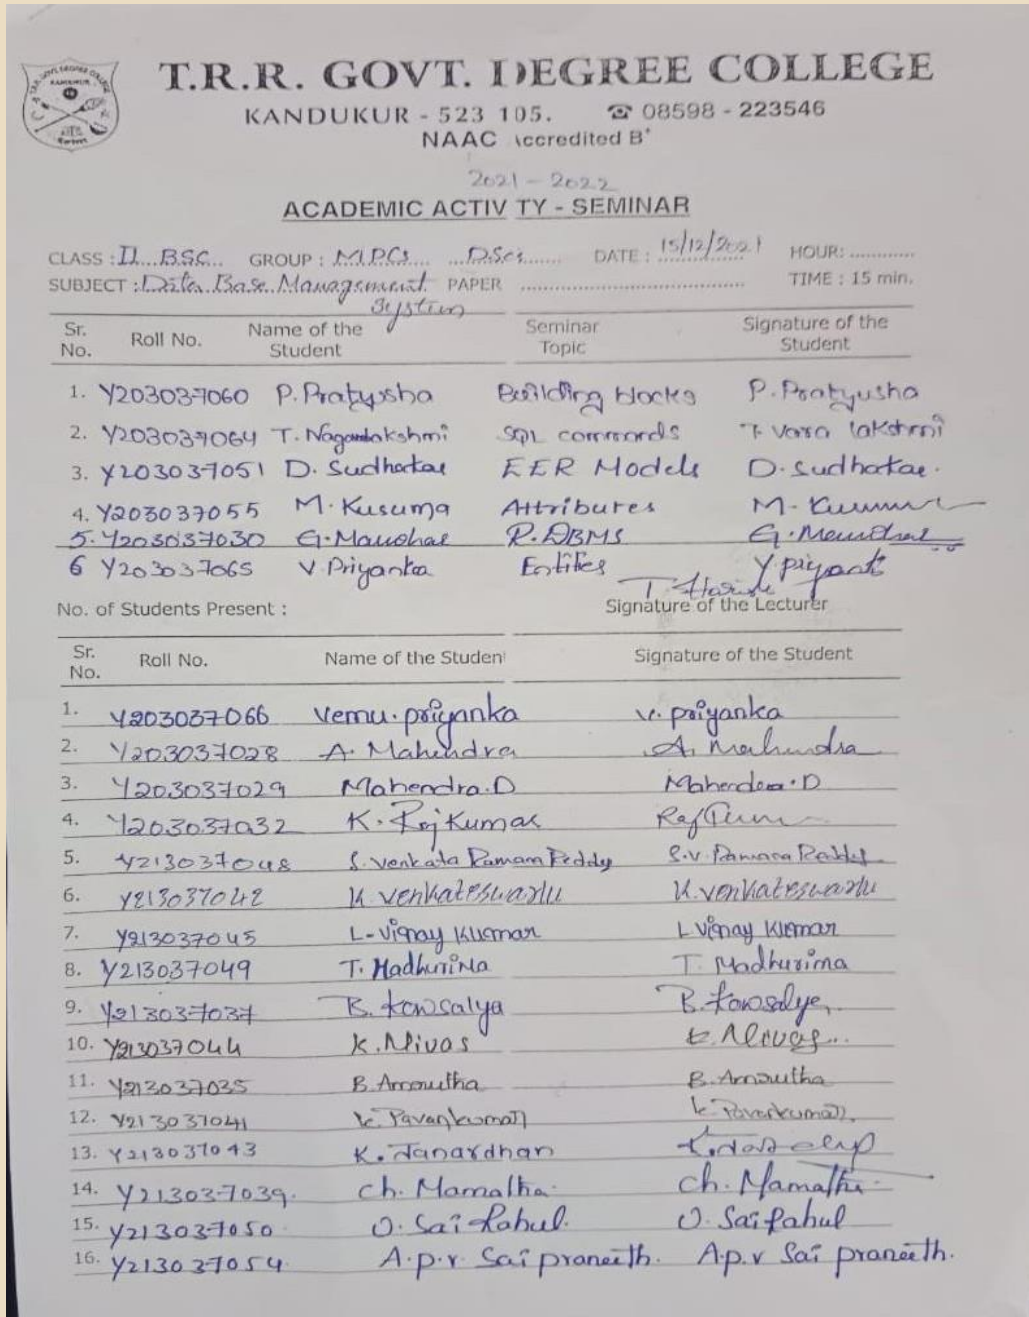 T.R.R. GOVT. DEGREE COLLEGE
KANDUKUR - 523 105. ☎ 08598 - 223546
NAAC Accredited B+
2021 - 2022
ACADEMIC ACTIVITY - SEMINAR
CLASS : II BSC GROUP : MPCs DSci DATE : 15/12/2021 HOUR: ............
SUBJECT : Data Base Management System PAPER .................... TIME : 15 min.
Sr. No. Roll No. Name of the Student Seminar Topic Signature of the Student
1. Y203037060 P. Pratyusha Building blocks P. Pratyusha
2. Y203037064 T. SQL commands T. Vara lakshmi
3. Y203037051 D. Sudhakar EER Models D. Sudhakar.
4. Y203037055 M. Kusuma Attributes M.
5. Y203037030 G. Manohar R.DBMS G. Manohar
6 Y203037065 V. Priyanka Entities Y.
T. Harish
No. of Students Present : Signature of the Lecturer
Sr. No. Roll No. Name of the Student Signature of the Student
1. Y203037066 Vemu. priyanka v. priyanka
2. Y203037028 A. Mahendra A. Mahendra
3. Y203037029 Mahendra.D Mahendra.D
4. Y203037032 K. Raj Kumar
5. Y213037048 S. Venkata Ramana Reddy S.V. Ramana Reddy
6. Y213037042 K. Venkateswarlu K. Venkateswarlu
7. Y213037045 L-Vinay Kumar L Vinay Kumar
8. Y213037049 T. Madhurima T. Madhurima
9. Y213037037 B. Kowsalya B. Kowsalya
10. Y213037044 K. Nivas K. Nivas
11. Y213037035 B. Amrutha B. Amrutha
12. Y213037041 K. Pavankumar K. Pavankumar
13. Y213037043 K. Janardhan
14. Y213037039. Ch. Mamatha. Ch. Mamatha.
15. Y213037050 O. Sai Rahul. O. Sai Rahul
16. Y213037054 A.p.v. Sai praneeth. A.p.v Sai praneeth.